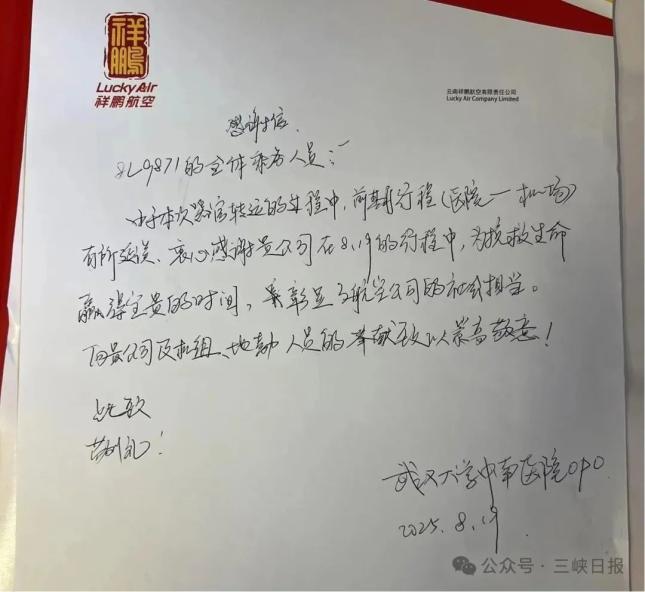 祥鹏
Lucky Air
祥鹏航空
云南祥鹏航空有限责任公司
Lucky Air Company Limited
感谢信
8L9871的全体乘务人员:
由于本次紧急转运的过程中,前期行程(医院一机场)
有所延误、衷心感谢贵公司在8.19的行程中,为挽救生命
赢得宝贵的时间,彰显了航空公司的社会担当。
向贵公司及机组、地勤人员的奉献致以崇高敬意!
此致
敬礼!
武汉大学中南医院OPO
2025.8.19
公众号·三峡日报